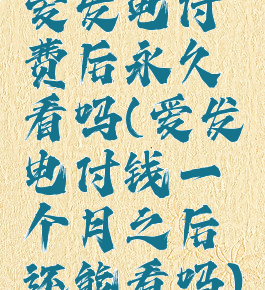 爱发电付
费后永久
看吗(爱发
电付钱一
个月之后
还能看吗)